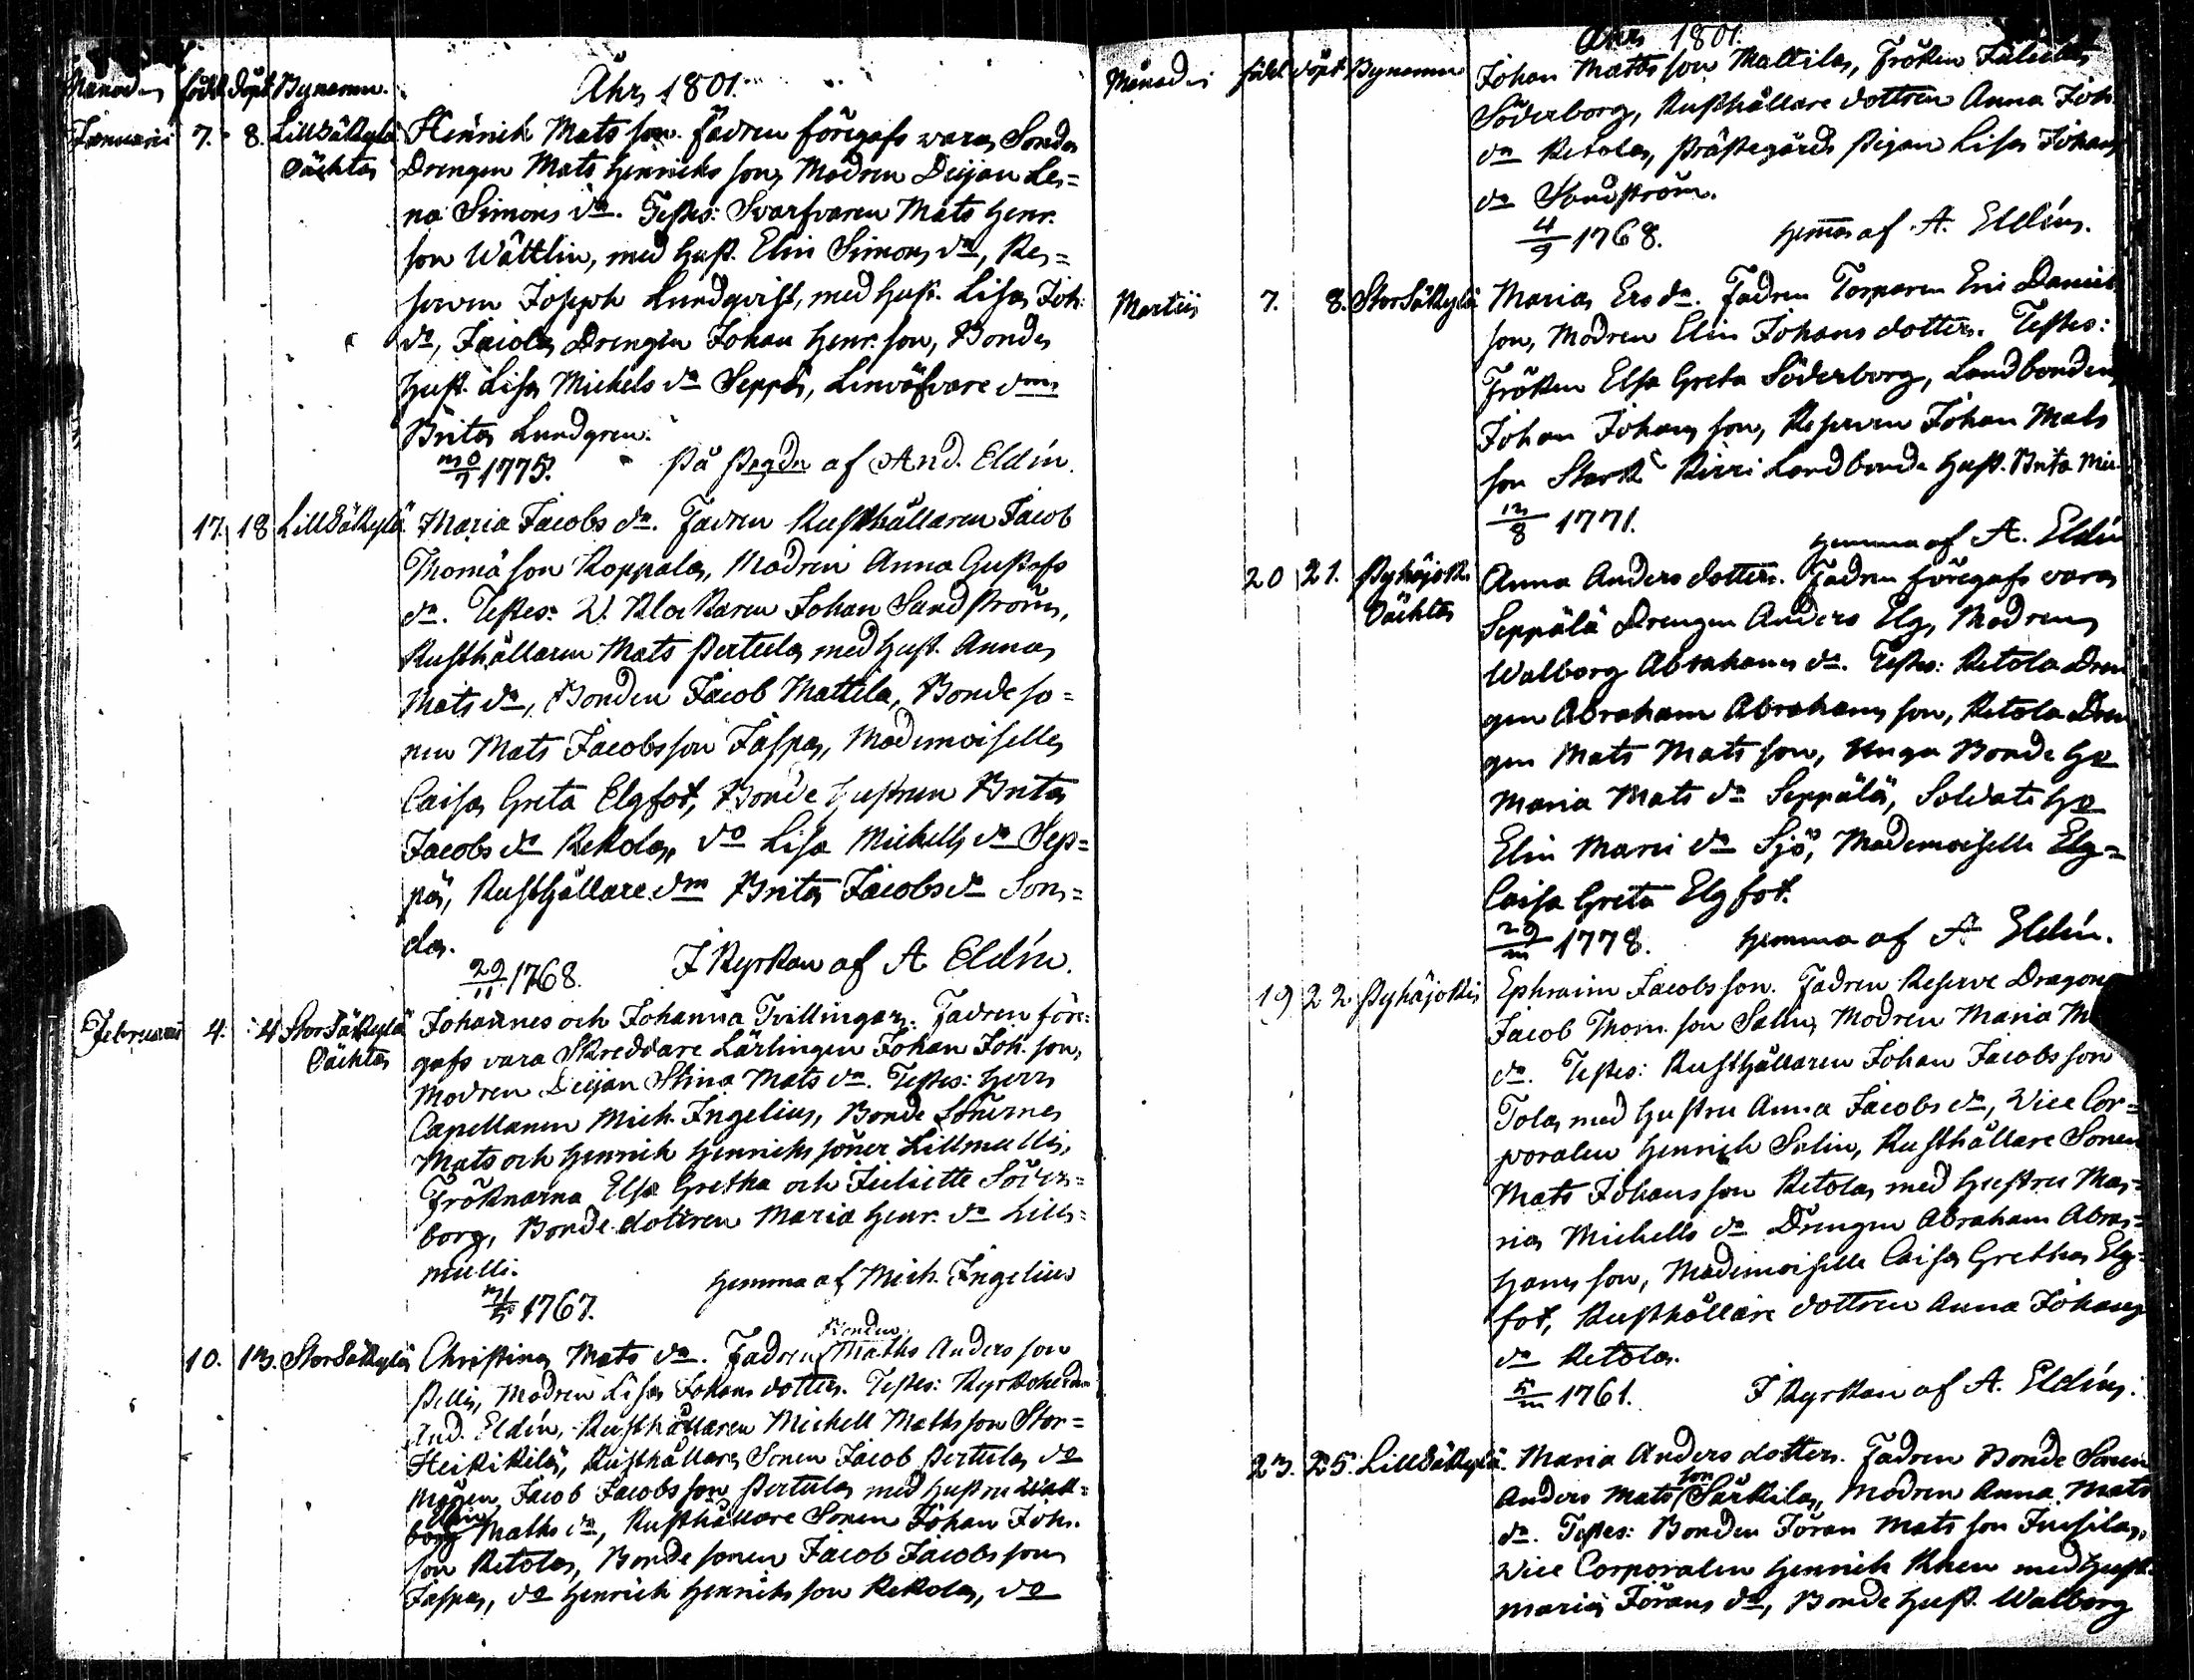 Månaden född döpt Bynamn.
Åhr 1801.
Januarii 7. 8. LillSäkylä Henrich Mats son. Fadren föregafs vara Sonda
Oächta Drengen Mats Henrichs son, Modren Deijan Le=
na Simons dr. Testes: Svarfvaren Mats Henr.
son Wättlin, med Hust. Elin Simons dr, Re=
serven Joseph Lundqvist, med Hust. Lisa Joh.
dr, Jaiola Drengen Johan Henr. son, Bonde
Hust. Lisa Michels dr Seppä, Linväfvare dm
Brita Lundgren.
1775. På Pregdn af And. Eldín.
17. 18 LillSäkylä Maria Jacobs dr. Fadren Rusthållaren Jacob
Thomä son Koppala, Modren Anna Gustafs
dr. Testes: V. Klockaren Johan Sandström,
Rusthållaren Mats Pertula med Hust. Anna
Mats dr, Bonden Jacob Mattila, Bonde so=
nen Mats Jacobs son Jaspa, Mademoiselle
Caisa Greta Elgfot, Bonde Hustrun Brita
Jacobs dr Rekola, do Lisa Michells dr Sep=
pä, Rusthållare dm Brita Jacobs dr Son=
da.
29/11 1768. I Kyrkan af A Eldín.
Februarii 4. 4 StorSäkylä Johannes och Johanna Tvillingar. Fadren före=
Oächta gafs vara Skreddare Lärlingen Johan Joh. son,
Modren Deijan Stina Mats dr. Testes: Herr
Capellanen Mich. Ingelius, Bonde Sönerne
Mats och Henrik Henrichs söner Lillmulli,
Fröknarna Elsa Gretha och Juliette Söder=
borg, Bonde dottren Maria Henr. dr Lill=
mulli.
1767. Hemma af Mich. Ingelius
Bonden
10. 13. StorSäkylä Christina Mats dr. Fadren Maths Anders son
Pelli, Modren Lisa Johans dotter. Testes: Kyrkoherden
And. Eldín, Rusthållaren Michell Maths son Stor=
Heikkilä, Rusthållare Sonen Jacob Pertula, do
Mågen Jacob Jacobs son Pertula med Hustru Wall=
Elin
borg Maths dr, Rusthållare Sonen Johan Joh.
son Ketola, Bonde sonen Jacob Jacobs son
Jaspa, do Henrich Henrichs son Rekola, do
Åhr 1801.
Månaden född döpt Bynamn
Johan Matts son Mattila, Fröken Juliette
Söderborg, Rusthållare dottren Anna Joh.
dr Ketola, Prästegårds Pigan Lisa Johans
dr Sandström.
4/9 1768. Hemma af A. Eldín.
Martii 7. 8. StorSäkylä Maria Ers dr. Fadren Torparen Eric Daniels
son, Modren Elin Johans dotter. Testes:
Fröken Elsa Greta Söderborg, Landbonden
Johan Johans son, Reserven Johan Mats
son Stark Kirri Landbonde Hust. Brita Mic
1771.
Hemma af A. Eldín
20 21. Pyhäjoki Anna Anders dotter. Fadren föregafs vara
Oächta Seppälä Drengen Anders Elg, Modren
Walborg Abrahams dr. Testes: Ketola Dren
gen Abraham Abrahams son, Ketola Dren
gen Mats Mats son, Unga Bonde Ho
Maria Mats dr Seppälä, Soldats Ho
Elin Mari dr Sjö, Mademoiselle Elg=
Caisa Greta Elgfot.
1778. Hemma af A Eldín.
19 22. Pyhäjoki Ephraim Jacobs son. Fadren Reserve Dragon
Jacob Thom. son Salin, Modren Maria M
dr. Testes: Rusthållaren Johan Jacobs son
Tola med Hustru Anna Jacobs dr, Vice Cor=
poralen Henrich Salin, Rusthållare Sonen
Mats Johans son Ketola med Hustru Ma=
ria Michells dr Drengen Abraham Abra=
hams son, Mademoiselle Caisa Gretha Elg=
fot, Rusthållare dottren Anna Johans
dr Ketola.
1761. I Kyrkan af A. Eldín.
23. 25. LillSäkylä. Maria Anders dotter. Fadren Bonde Sonen
son
Anders Mats Särkila, Modren Anna Mats
dr. Testes: Bonden Jöran Mats son Jusila,
Vice Corporalen Henrich Rhen med Hust.
Maria Jörans dr, Bonde Hust. Walborg